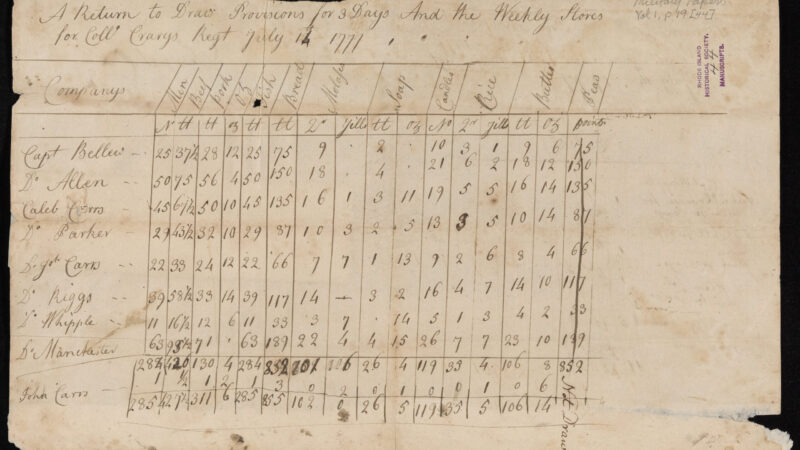 A Return to Draw Provisions for 3 Days And the Weekly Stores
for Coll° Crarys Regt July 12 1777
Military Papers
Vol 1, p 19 [44]
RHODE ISLAND
HISTORICAL SOCIETY.
44
MANUSCRIPTS.
Companys Men Beef Pork Oz Fish Bread Soap Candles Rice Butter Peas
No tt tt oz tt tt Gills tt oz No Gills tt Oz points
Capt Bellew 25 37½ 28 12 25 75 9 2 10 3 1 9 6 75
Do Allen 50 75 56 4 50 150 18 4 21 6 2 18 12 150
Caleb Carrs 45 67½ 50 10 45 135 16 1 3 11 19 5 5 16 14 135
Do Parker 29 43½ 32 10 29 87 10 3 2 5 13 3 5 10 14 87
Carrs 22 33 24 12 22 66 7 7 1 13 9 2 6 8 4 66
Do Riggs 39 58½ 39 117 14 — 3 2 16 4 7 14 10 117
Do Whipple 11 16½ 12 6 11 33 3 7 14 5 1 3 4 2 33
Do Manchester 63 71 63 189 22 4 4 15 26 7 7 23 10 189
284 4 284 852 106 26 4 119 35 4 106 8 852
1 1 2 1 3 0 2 0 1 0 0 1 0 6
John Carrs 285 311 6 285 855 102 0 26 5 119 35 5 106 14